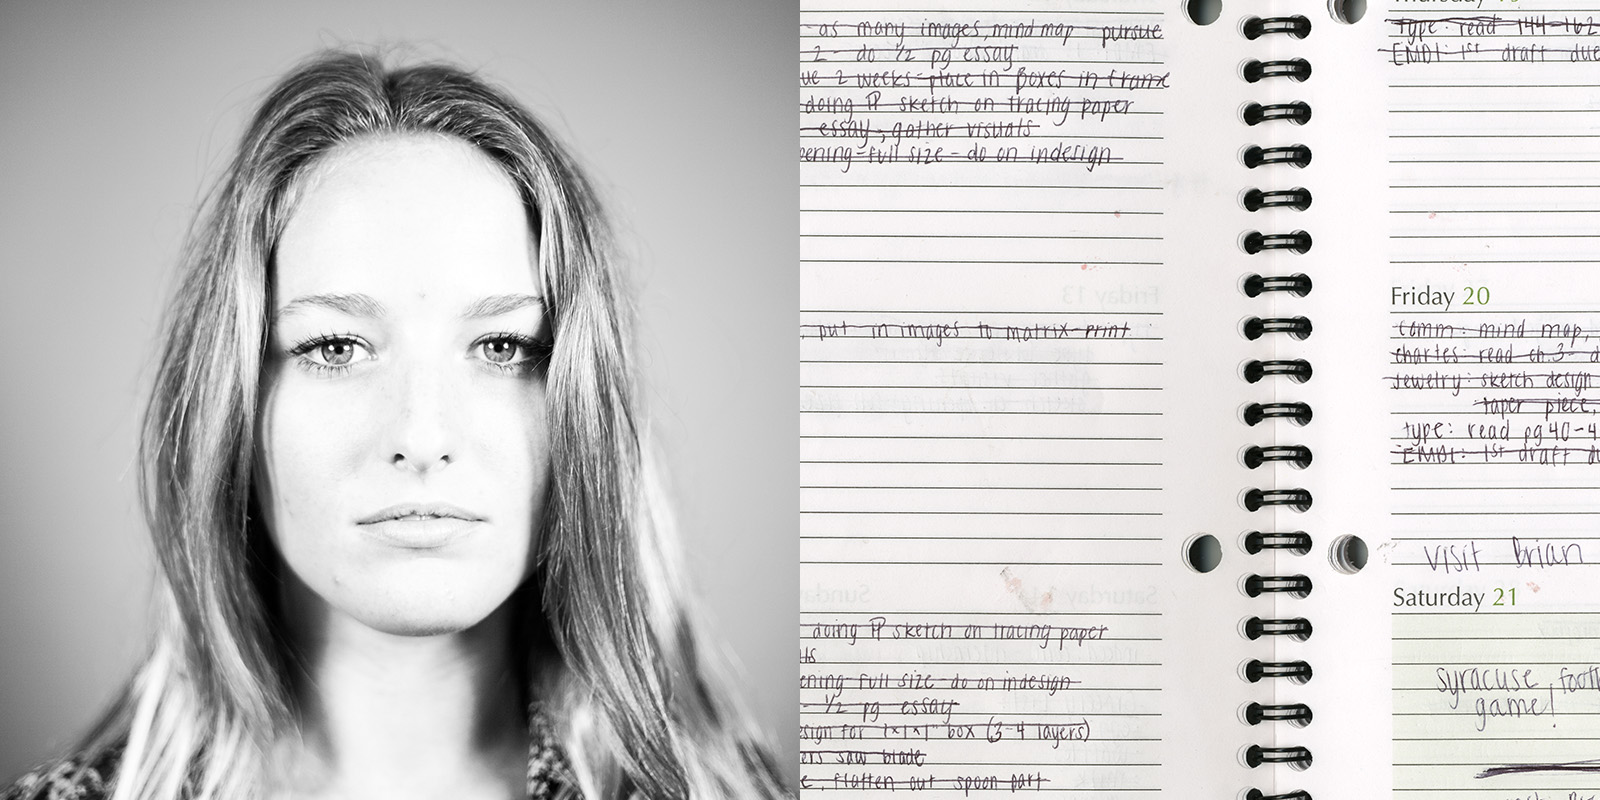 - as many images, mind map - pursue
2 - do 1/2 pg essay
ue 2 weeks - place in boxes in frame
doing PP sketch on tracing paper
essay, gather visuals
pening - full size - do on indesign
put in images to matrix - print
doing PP sketch on tracing paper
ening - full size - do on indesign
- 1/2 pg essay
esign for 1x1x1" box (3-4 layers)
ers saw blade
e, flatten out spoon part
Thursday 19
type: read 144-162
EMDI: 1st draft due
Friday 20
comm: mind map,
chartes: read ch.3- d
jewelry: sketch design
taper piece,
type: read pg 40-4
EMDI: 1st draft du
visit brian
Saturday 21
syracuse footb
game!